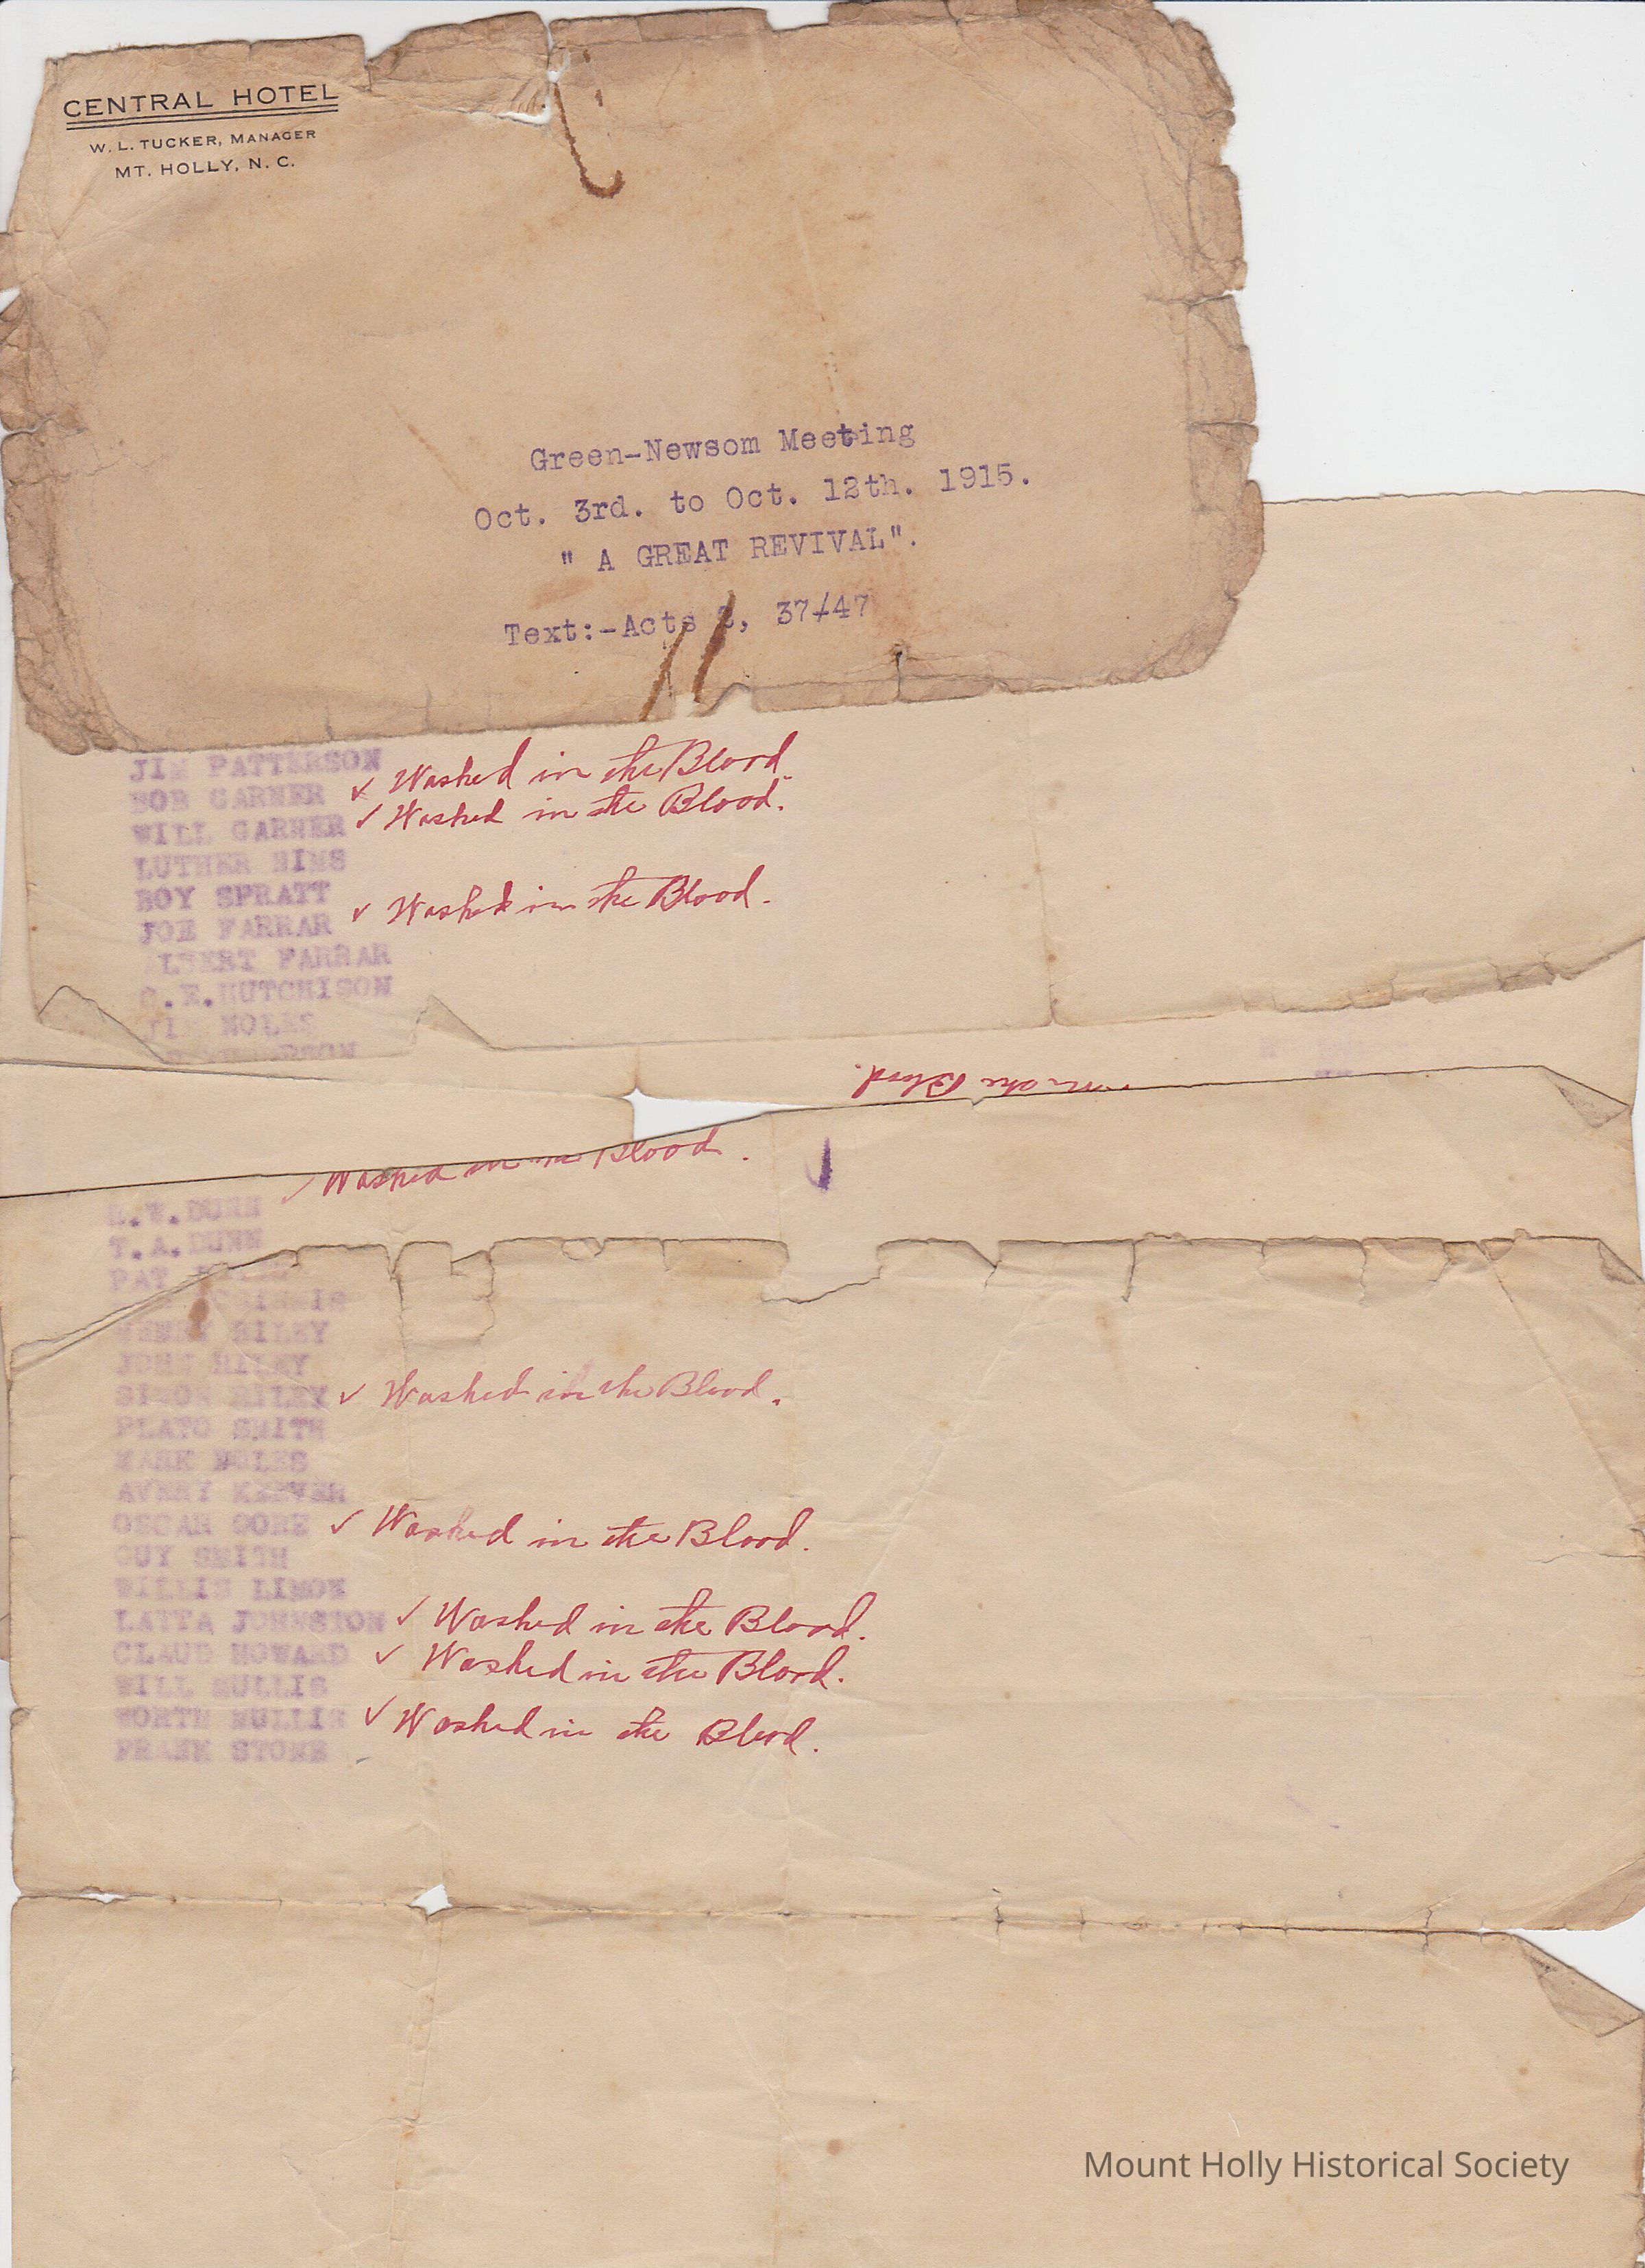 CENTRAL HOTEL
W. L. TUCKER, MANAGER
MT. HOLLY, N. C.
Green-Newsom Meeting
Oct. 3rd. to Oct. 12th. 1915.
" A GREAT REVIVAL".
Text:-Acts 2, 37/47
JIM PATTERSON
BOB GARNER ✓ Washed in the Blood.
WILL GARNER ✓ Washed in the Blood.
LUTHER
SPRATT
JOE FARRAR ✓ Washed in the Blood.
ALBERT FARRAR
HUTCHISON
NOLES
the Blood.
✓ Washed in the Blood.
DUNN
T.A.DUNN
PAT
HENRY RILEY
JOHN RILEY
SIMON RILEY ✓ Washed in the Blood.
PLATO SMITH
MARK NOLES
AVERY KEEVER
OSCAR GORE ✓ Washed in the Blood.
GUY SMITH
WILLIS
LATTA JOHNSTON ✓ Washed in the Blood.
CLAUD HOWARD ✓ Washed in the Blood.
WILL MULLIS
WORTH MULLIS ✓ Washed in the Blood.
FRANK STONE
Mount Holly Historical Society